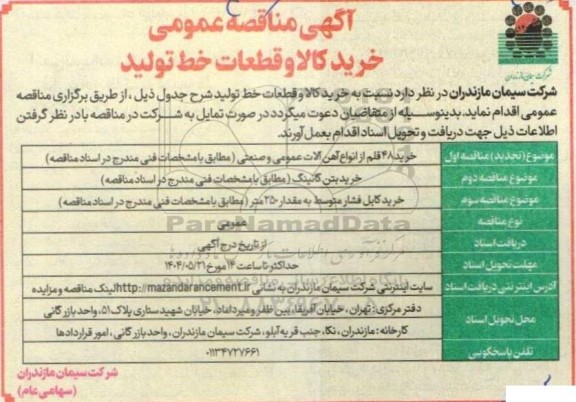 آگهی مناقصه عمومی
خرید کالا و قطعات خط تولید
شرکت سیمان مازندران
شرکت سیمان مازندران در نظر دارد نسبت به خرید کالا و قطعات خط تولید شرح جدول ذیل ، از طریق برگزاری مناقصه
عمومی اقدام نماید. بدینوسیله از متقاضیان دعوت میگردد در صورت تمایل به شرکت در مناقصه با در نظر گرفتن
اطلاعات ذیل جهت دریافت و تحویل اسناد اقدام بعمل آورند.
موضوع (تجدید) مناقصه اول خرید ۴۸ قلم از انواع آهن آلات عمومی و صنعتی (مطابق با مشخصات فنی مندرج در اسناد مناقصه)
موضوع مناقصه دوم خرید بتن گانینگ (مطابق با مشخصات فنی مندرج در اسناد مناقصه)
موضوع مناقصه سوم خرید کابل فشار متوسط به مقدار ۲۵۰ متر (مطابق با مشخصات فنی مندرج در اسناد مناقصه)
نوع مناقصه عمومی
دریافت اسناد از تاریخ درج آگهی
مهلت تحویل اسناد حداکثر تا ساعت ۱۴ مورخ ۱۴۰۴/۰۵/۲۱
آدرس اینترنتی دریافت اسناد سایت اینترنتی شرکت سیمان مازندران به نشانی http://mazandarancement.ir لینک مناقصه و مزایده
محل تحویل اسناد دفتر مرکزی: تهران ، خیابان آفریقا، بین ظفر و میرداماد، خیابان شهید ستاری پلاک ۵۱، واحد بازرگانی
کارخانه : مازندران ، نکا، جنب قریه آبلو ، شرکت سیمان مازندران ، واحد بازرگانی ، امور قراردادها
تلفن پاسخگویی ۰۱۱۳۴۷۲۷۶۶۱
شرکت سیمان مازندران
(سهامی عام)
ParsNamadData